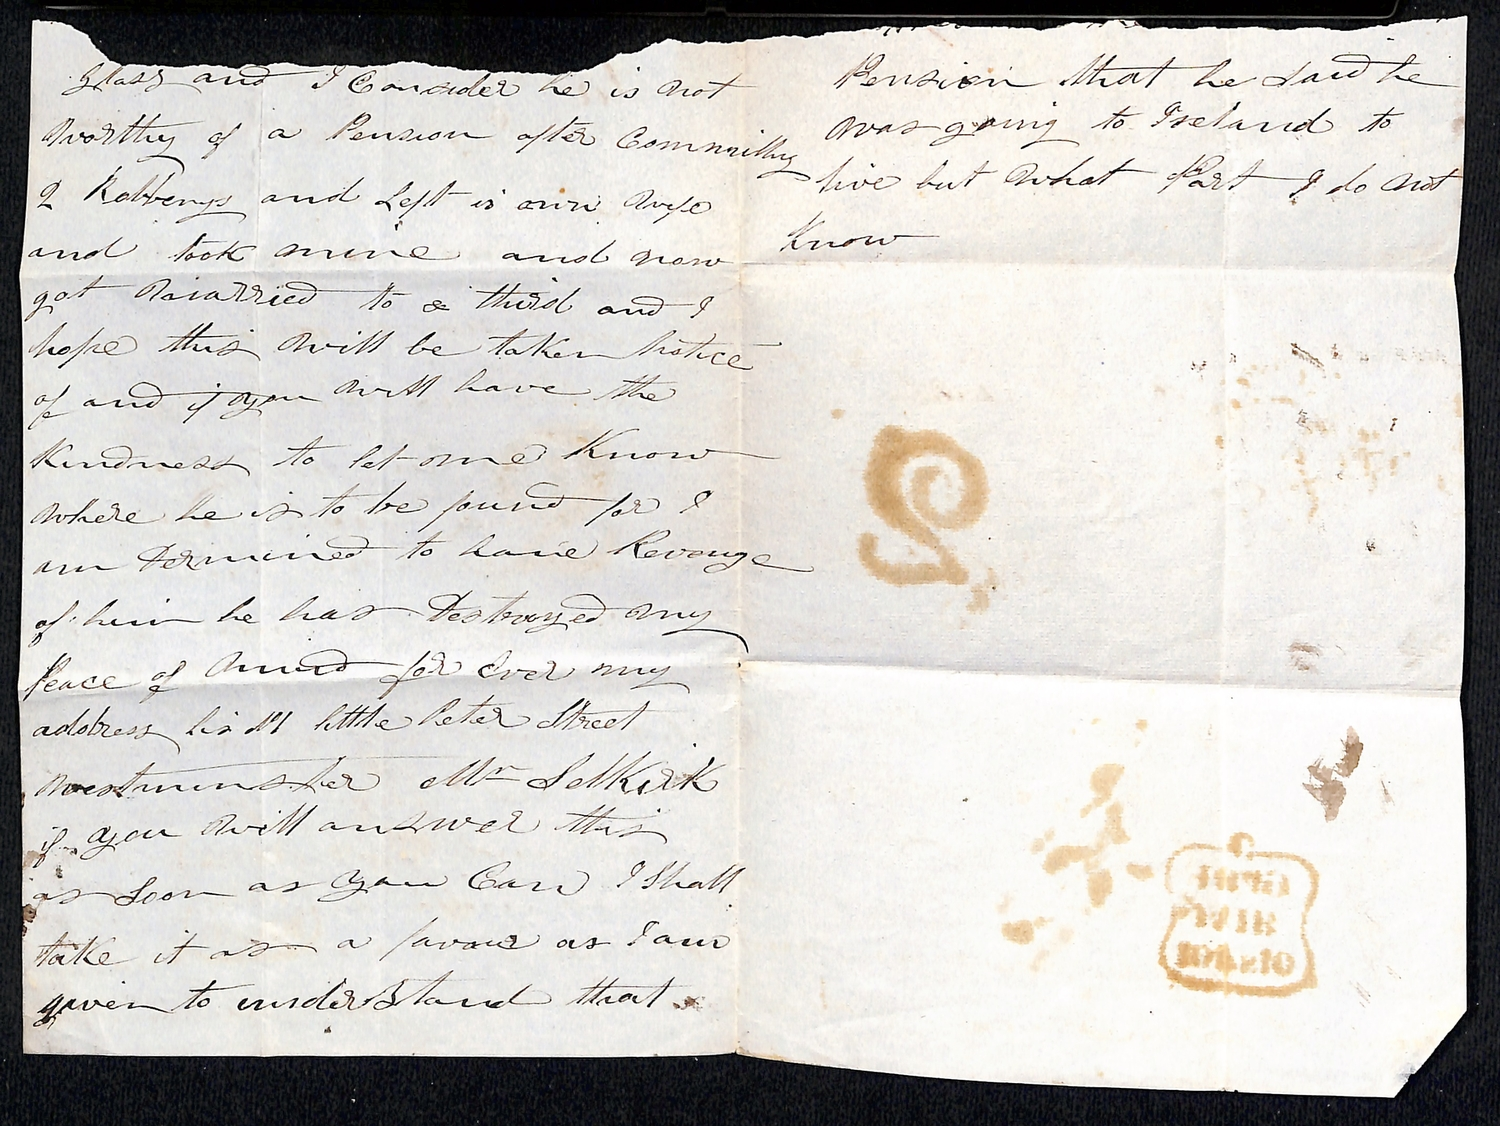 glass and I Consider he is not
worthy of a Pension after Committing
2 Robberys and Left is own wife
and took mine and now
got Married to a third and I
hope this will be taken Notice
of and if you will have the
Kindness to let me Know
where he is to be found for I
am Determined to have Revenge
of him he has Destroyed my
Peace of Mind for Ever my
address his little Peter Street
Westminster Mr Selkirk
if you will answer this
as Soon as you Can I Shall
take it as a favour as I am
given to understand that
Pension that he said he
was going to Ireland to
live but what Part I do not
Know
2